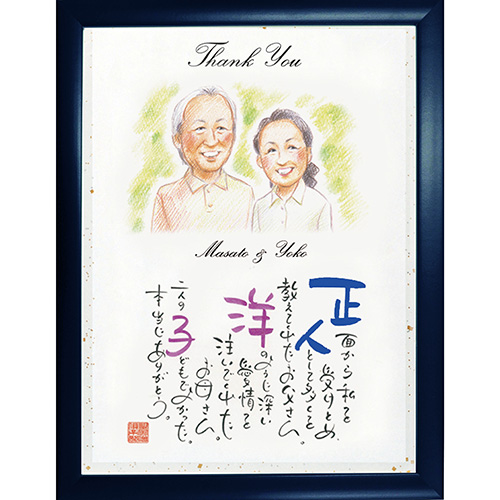 Thank You
Masato & Yoko
正面から私を
受けとめ、
人として多くを
教えてくれたお父さん。
洋のように深い
愛情を
注いでくれた
お母さん。
二人の子どもでよかった。
本当にありがとう。